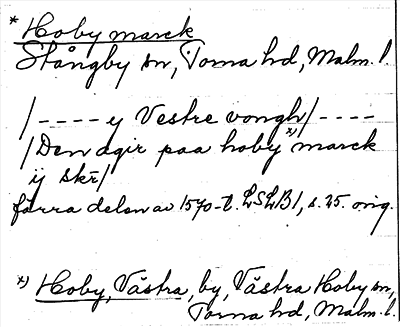 * Hoby marck
Stångby sn, Torna hd, Malm. l.
/---- y Vestre vongh/----
/Den agir paa hoby *) marck
ij skr/
förra delen av 1570-t. LSLB1, s. 25. orig.
*) Hoby, Västra, by, Västra Hoby sn,
Torna hd, Malm. l.